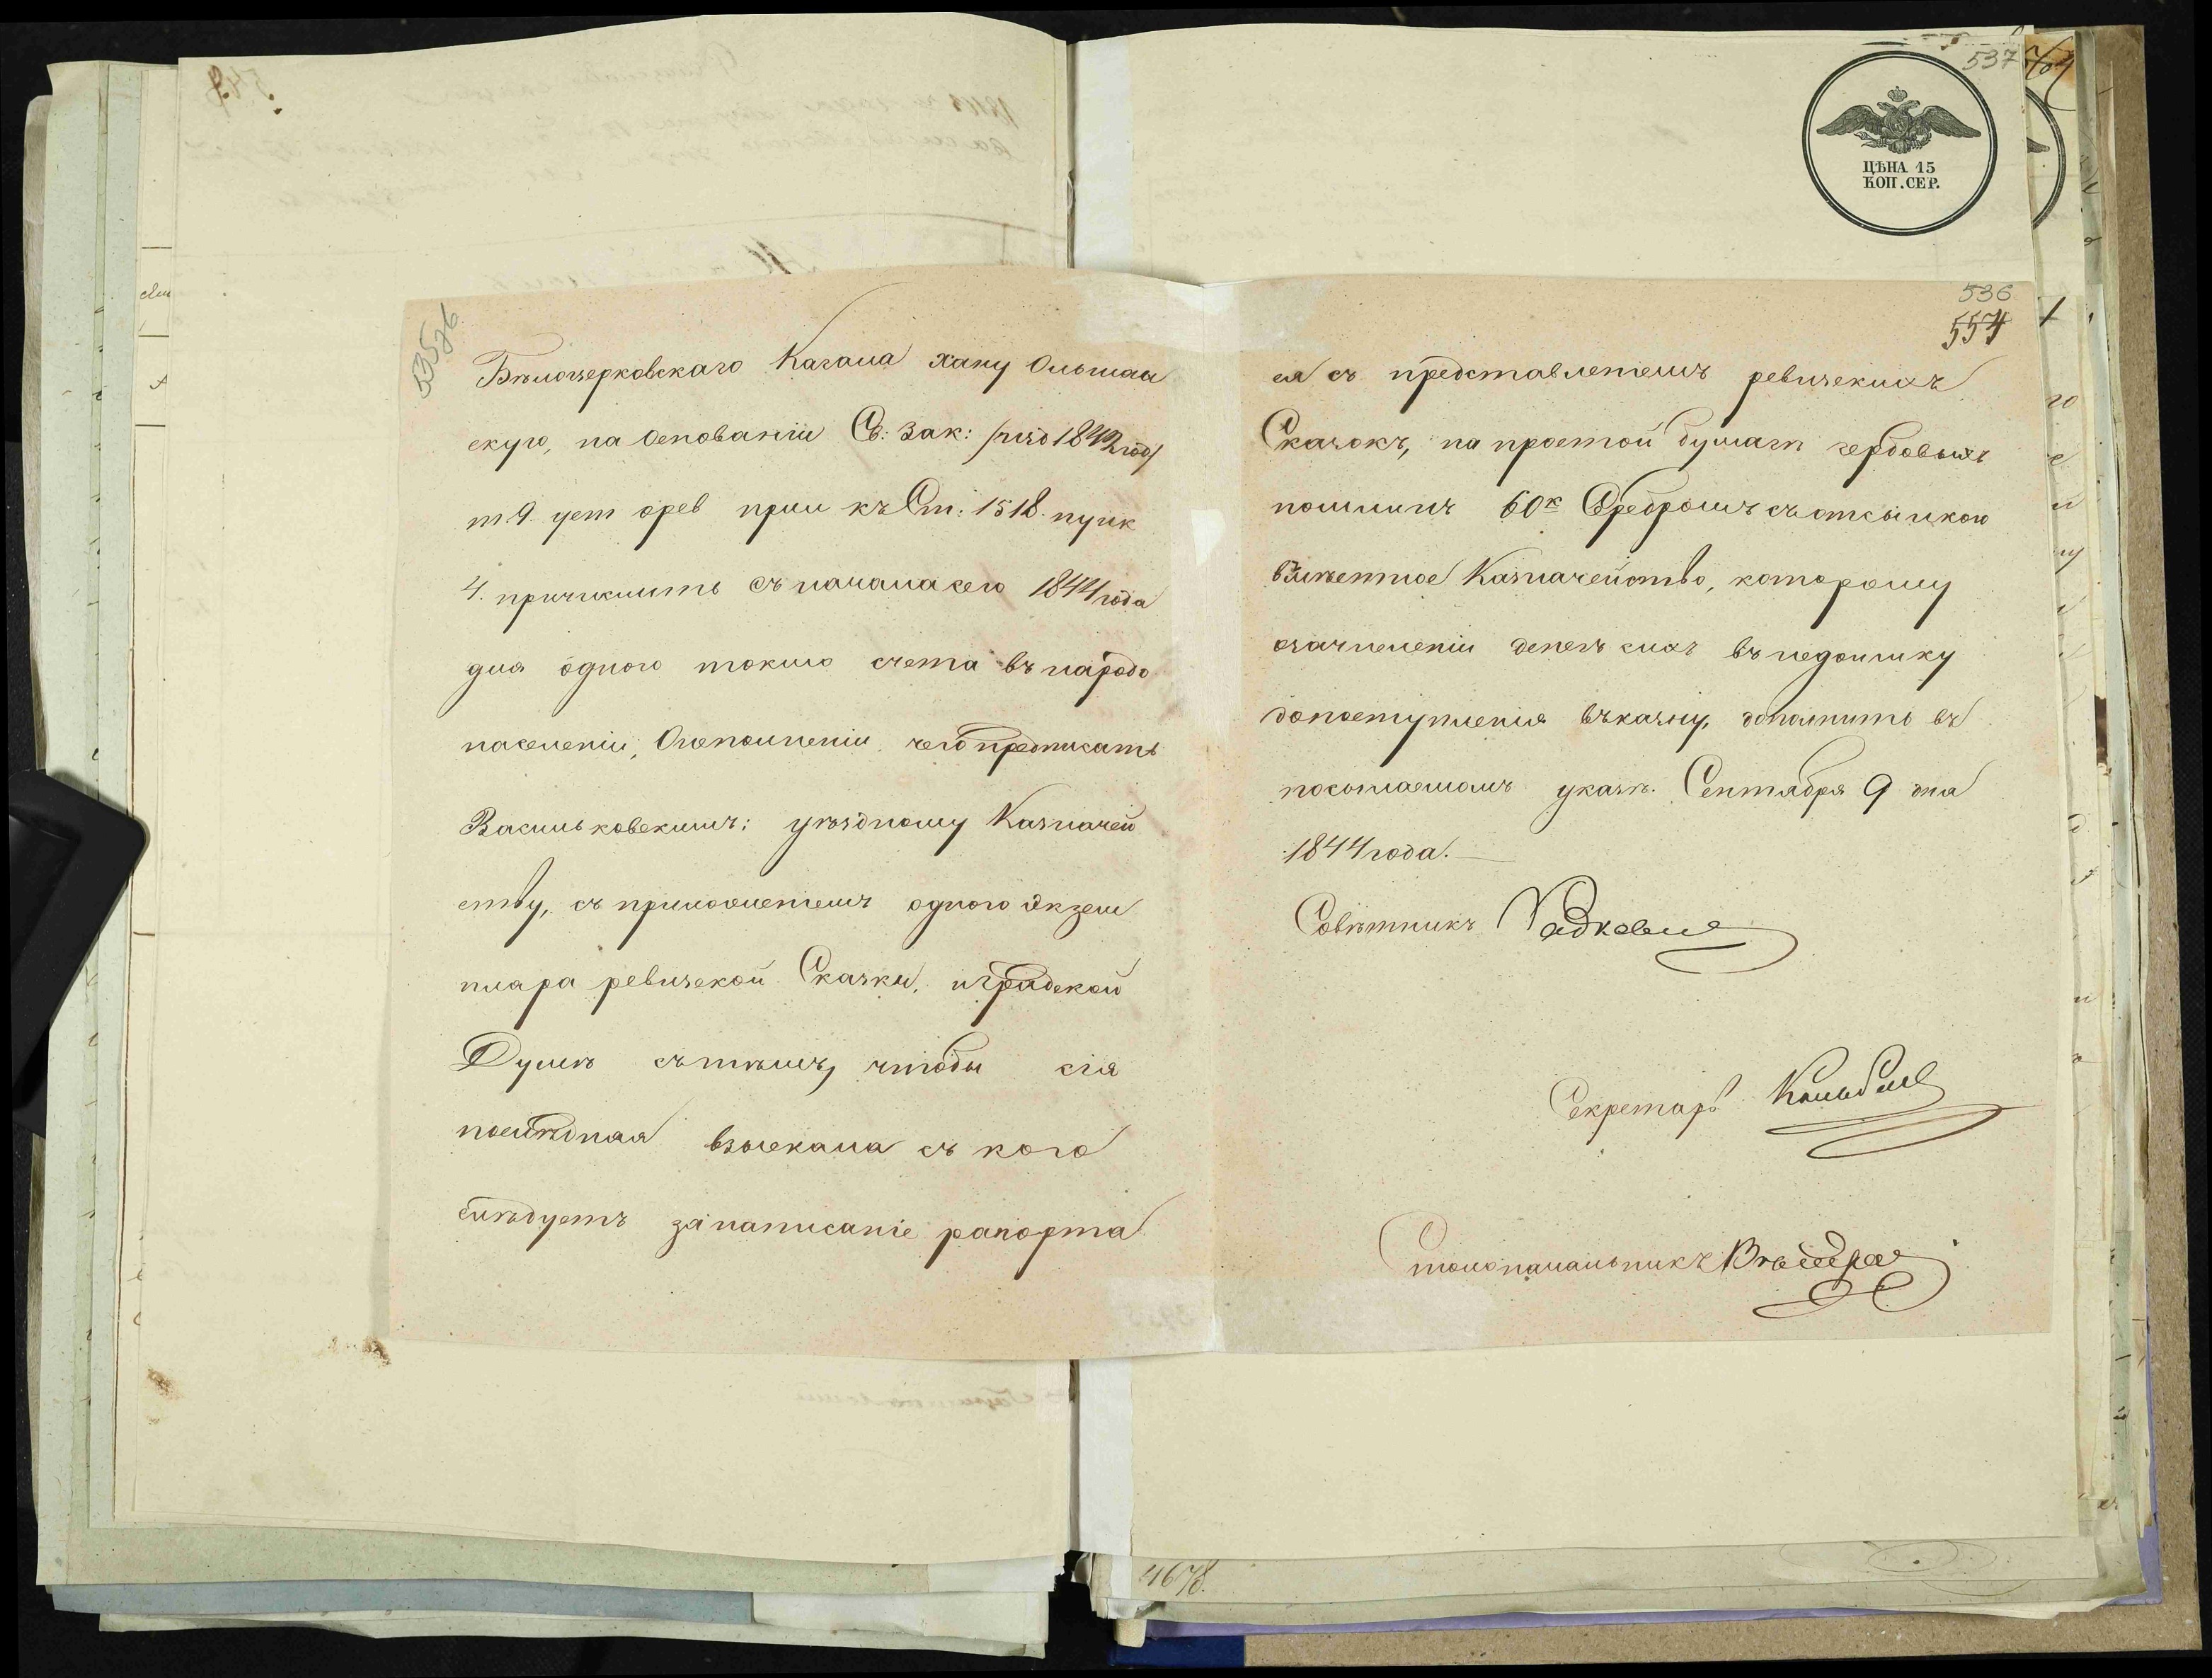 535об
Бѣлоцерковскаго Кагала Хану Ольшан
скую, на основаніи Св: Зак: /изд 1842 год/
т. 9. уст о рев прим къ Ст: 1518. пунк
4. причислить съ начала сего 1844 года
для одного токмо счета въ народо
населеніи, О исполненіи чего предписать
Васильковскимъ: уѣздному Казначей
ству, съ приложеніемъ одного экзем
пляра ревизской Сказки, и Градской
Думѣ съ тѣмъ, чтобы сія
послѣдняя взыскала съ кого
слѣдуетъ за написаніе рапорта
537
ЦѢНА 15
КОП. СЕР.
536
557
ея съ представленіемъ ревизскихъ
Сказокъ, на простой бумагѣ гербовыхъ
пошлинъ 60к Серебромъ съ отсылкою
въ мѣстное Казначейство, которому
о зачисленіи денегъ сихъ въ недоимку
до поступленія въ казну, дополнить въ
посылаемомъ указѣ. Сентября 9 дня
1844 года.
Совѣтникъ
Секретарь
Столоначальникъ
4678.